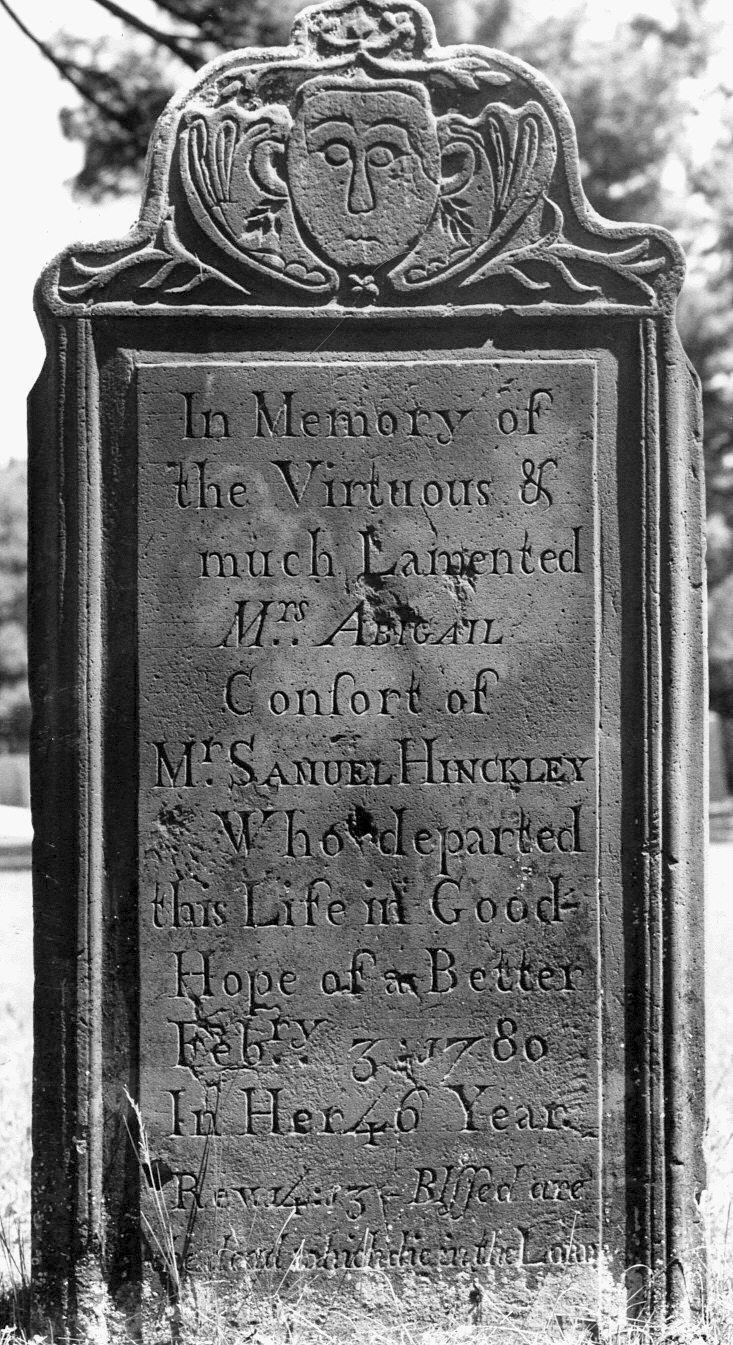 In Memory of
the Virtuous &
much Lamented
Mrs. ABIGAIL
Conſort of
Mr. SAMUEL HINCKLEY
Who departed
this Life in Good
Hope of a Better
Febry. 3: 1780
In Her 46 Year.
Rev. 14:13 - Blſſed are
the dead which die in the Lord